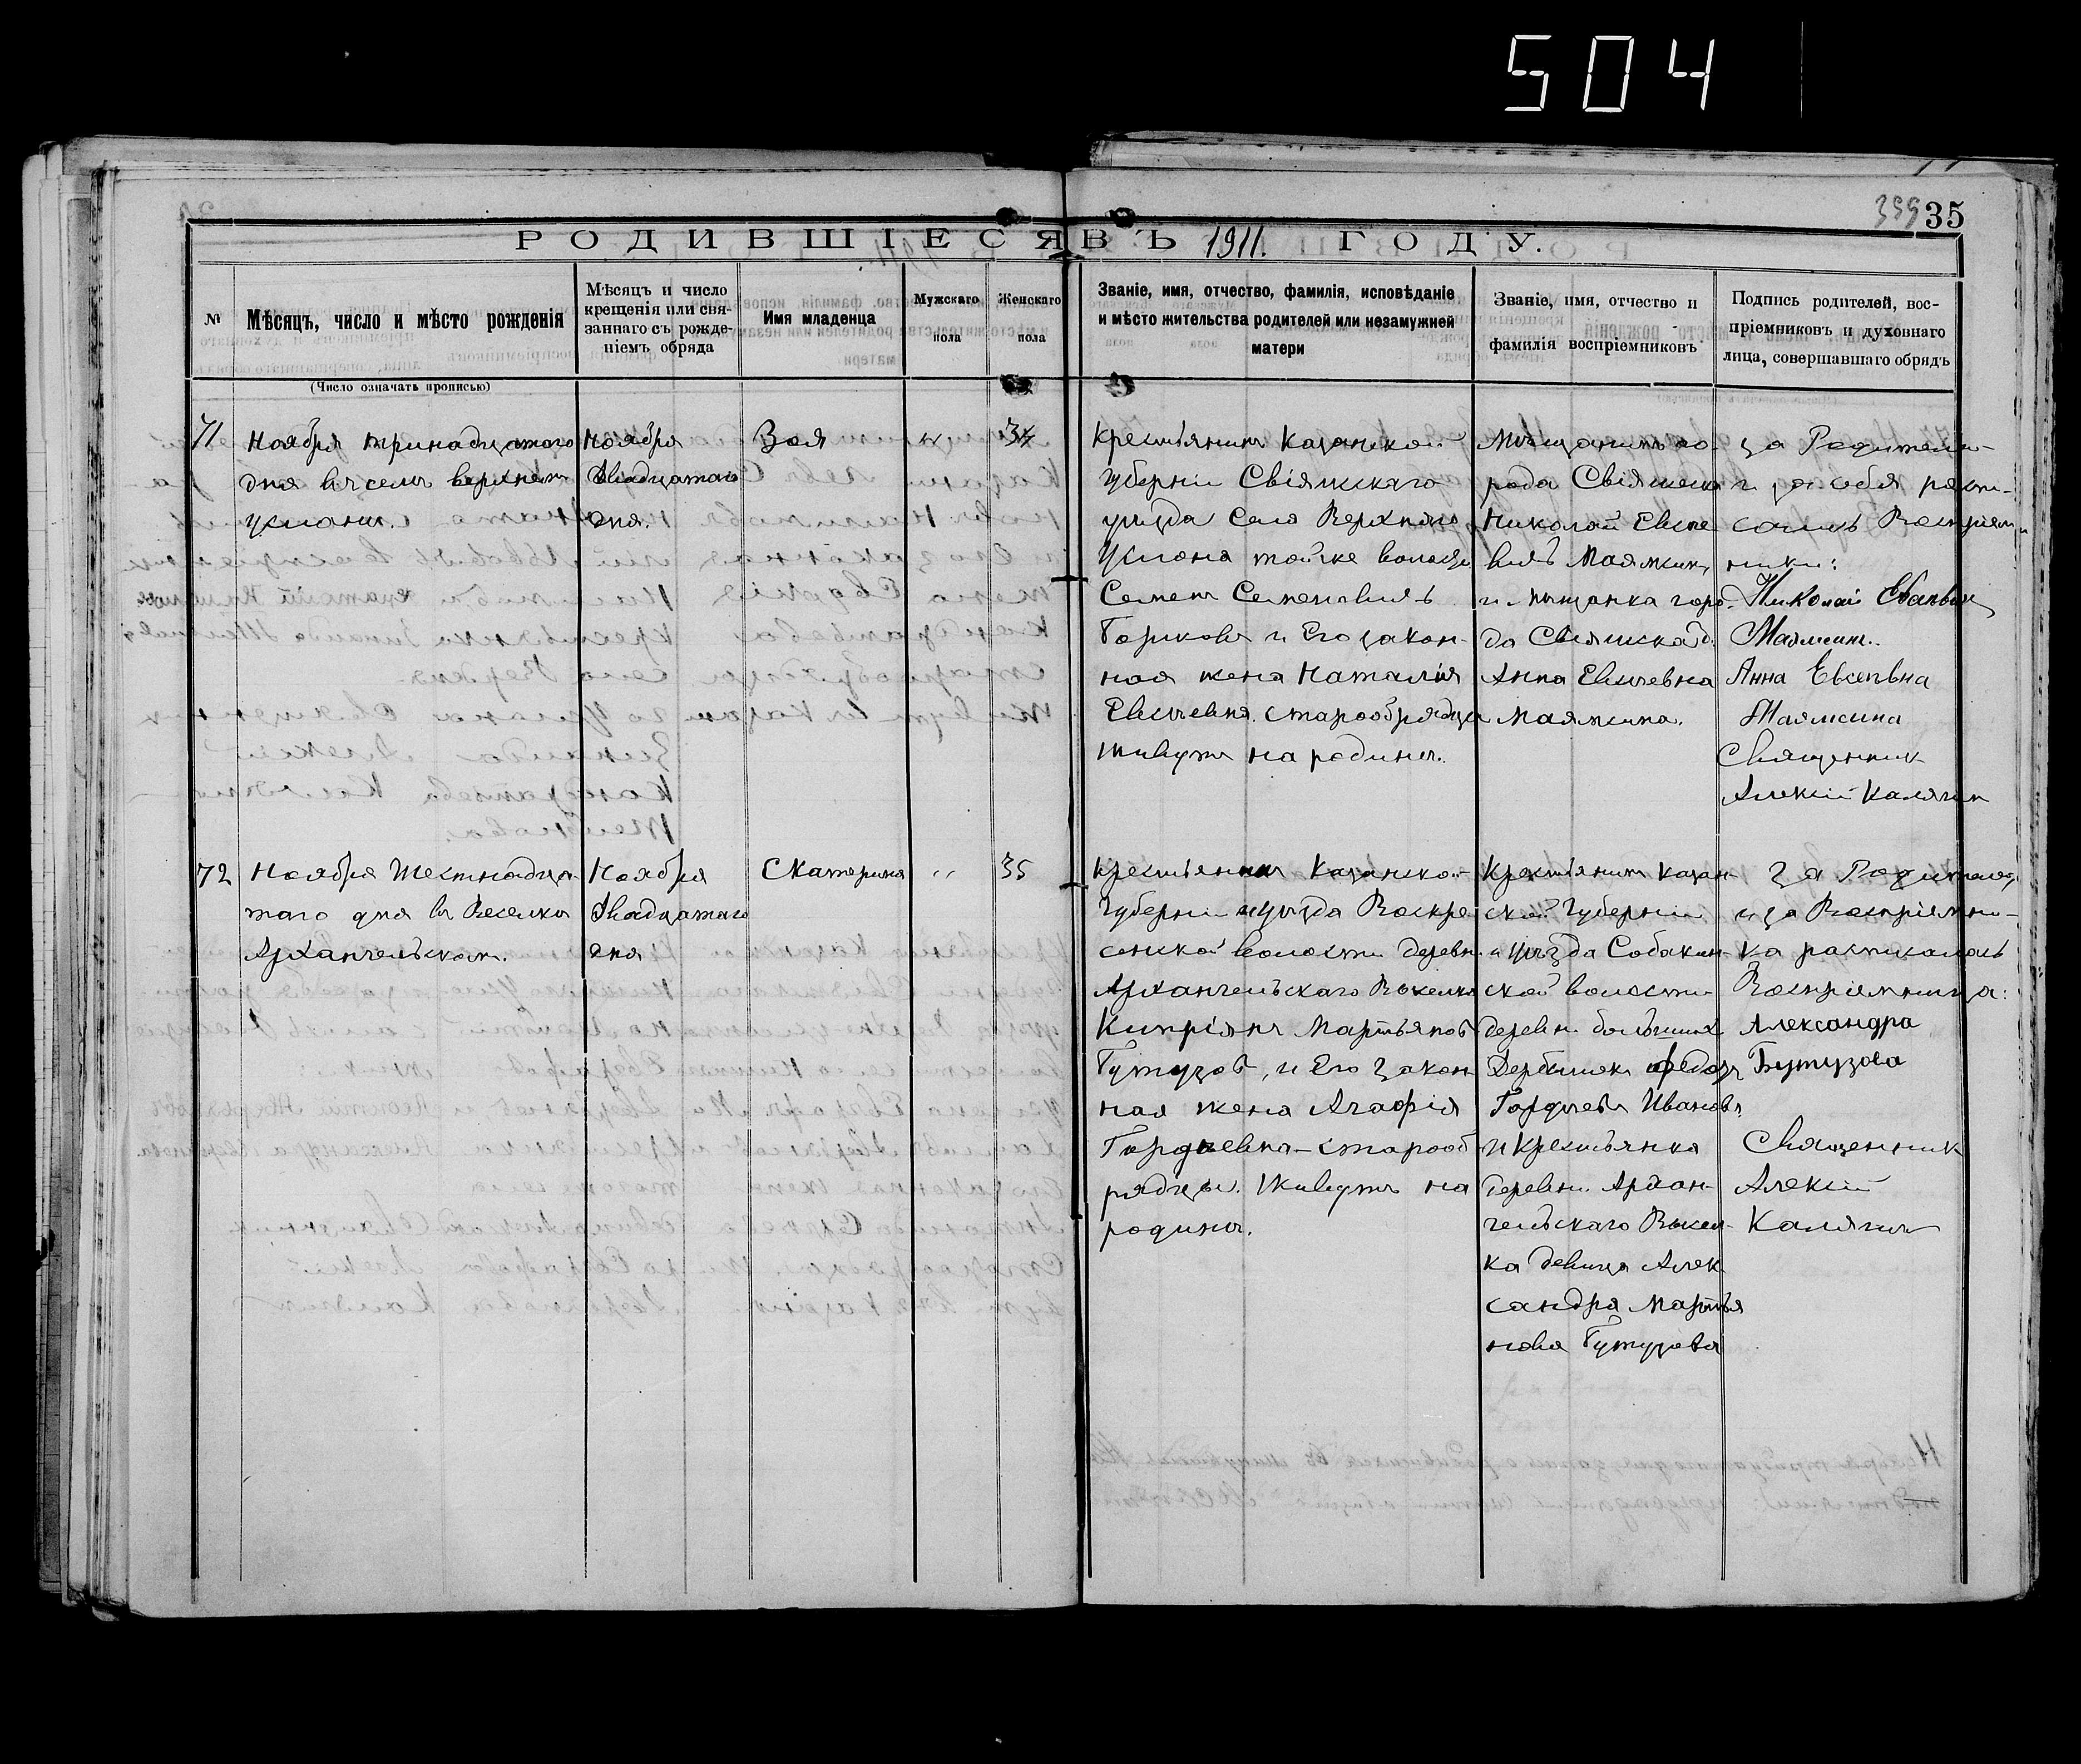 504
399 35
РОДИВШІЕСЯ ВЪ 1911. ГОДУ.
№
Мѣсяцъ, число и мѣсто рожденія
(Число означать прописью)
Мѣсяцъ и число
крещенія или свя-
заннаго съ рожде-
ніемъ обряда
Имя младенца
Мужскаго
пола
Женскаго
пола
Званіе, имя, отчество, фамилія, исповѣданіе
и мѣсто жительства родителей или незамужней
матери
Званіе, имя, отчество и
фамилія воспріемниковъ
Подпись родителей, вос-
пріемниковъ и духовнаго
лица, совершавшаго обрядъ
71
Ноября тринадцатого
дня въ селѣ верхнемъ
Услонѣ.
Ноября
Двадцатаго
дня.
Зоя
"
34
Крестьянинъ Казанской
Губерніи Свіяжскаго
уѣзда Села Верхняго
Услона тойже волости
Семенъ Семеновичъ
Горшковъ и Его закон-
ная жена Наталія
Евсѣевна. старообрядцы
живутъ на родинѣ.
Мѣщанинъ го-
рода Свіяжска
Николай Евсѣе
вичъ Маямсин,
и мѣщанка горо-
да Свіяжска д.
Анна Евсѣевна
Маямсина.
за Родителей
и за себя распи-
сались Воспріем
ники:
Николай Евсѣевич
Маямсин.
Анна Евсѣевна
Маямсина
Священник
Алексій Калягин
72
Ноября Шестнадца-
таго дня въ Веселкѣ
Архангельском.
Ноября
Двадцатаго
дня
Екатерина
"
35
Крестьянинъ Казанской
Губерніи и уѣзда Воскре
сенской волости деревн.
Архангельскаго Выселка
Кипріянъ Мартьянов
Бутузов, и Его закон
ная жена Агафія
Гордѣевна - старооб
рядцы. Живутъ на
родинѣ.
Крестьянинъ Казан-
ской Губерніи
и уѣзда Собакин-
ской волости
деревни больших
Дербышек Федоръ
Гордѣевъ Ивановъ
и Крестьянка
деревни Архан-
гельскаго Высел-
ка девица Алек
сандра Мартья
нова Бутузова
За Родителей,
и за Воспріемни-
ка расписалась
Воспріемница:
Александра
Бутузова
Священник
Алексій
Калягин